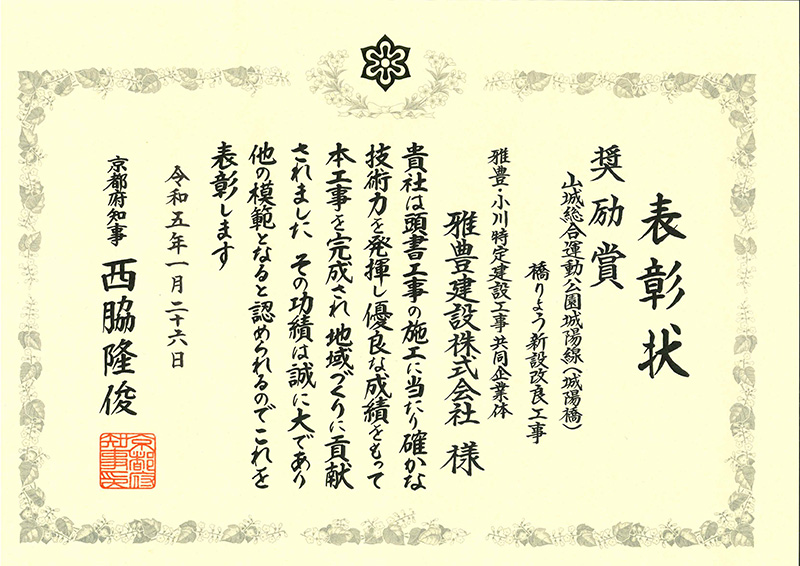 表彰状
奨励賞
山城総合運動公園城陽線(城陽橋)
橋りょう新設改良工事
雅豊・小川特定建設工事共同企業体
雅豊建設株式会社 様
貴社は頭書工事の施工に当たり確かな
技術力を発揮し優良な成績をもって
本工事を完成され地域づくりに貢献
されました その功績は誠に大であり
他の模範となると認められるのでこれを
表彰します
令和五年一月二十六日
京都府知事 西脇隆俊
京都府知事印